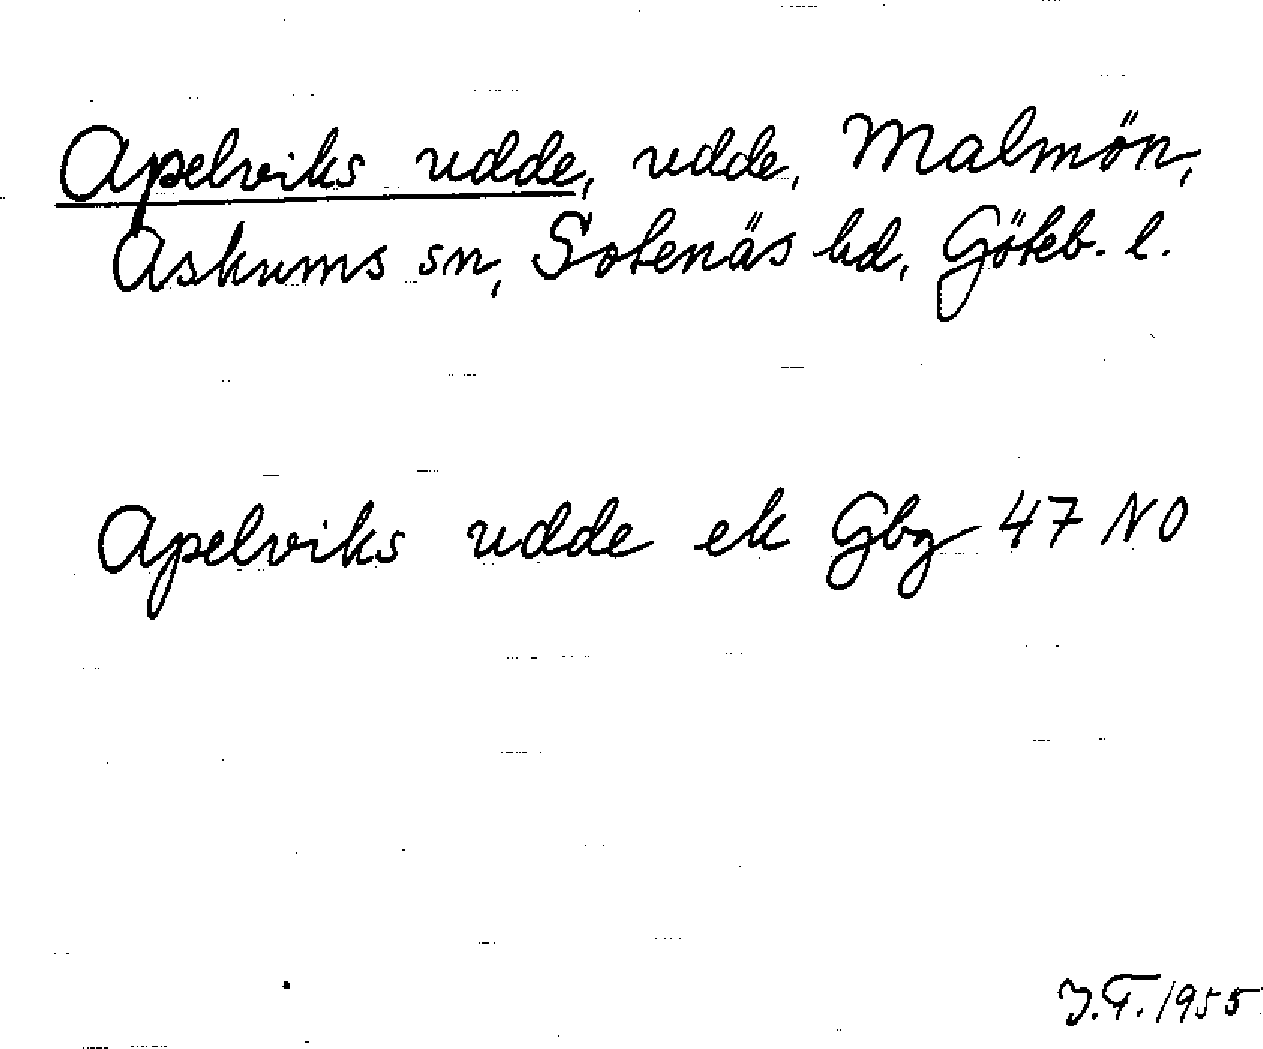 Apelviks udde, udde, Malmön,
Askums sn, Sotenäs hd, Göteb. l.
Apelviks udde ek Gbg 47 NO
J.F. 1955